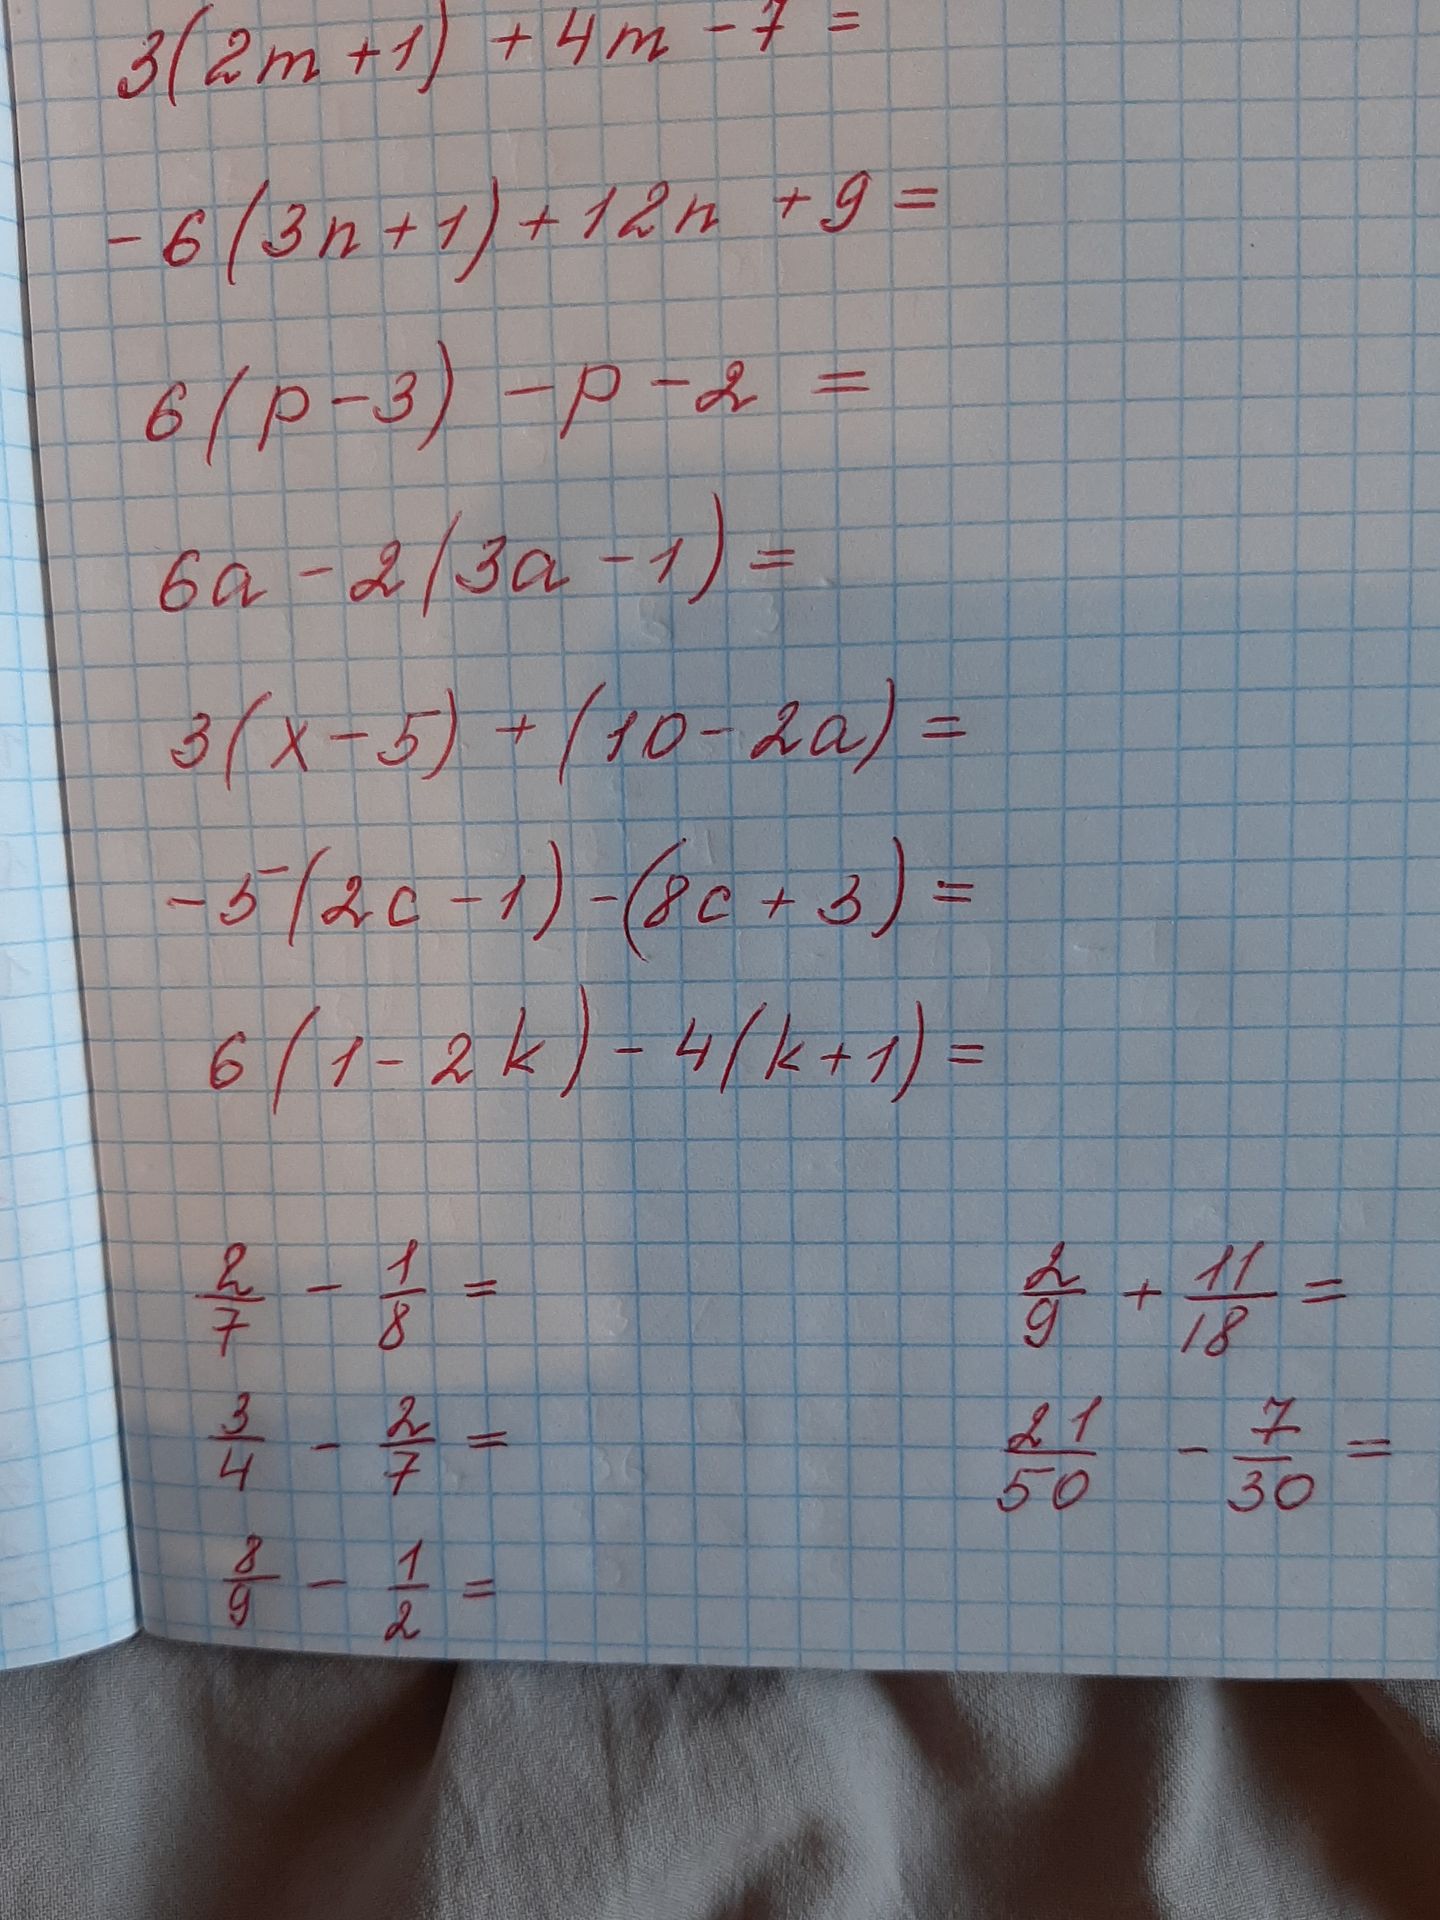 3(2m+1) + 4m - 7 =
-6(3n+1) + 12n + 9 =
6(p-3) - p - 2 =
6a - 2(3a - 1) =
3(x-5) + (10-2a) =
-5(2c-1) - (8c+3) =
6(1-2k) - 4(k+1) =
2/7 - 1/8 = 2/9 + 11/18 =
3/4 - 2/7 = 21/50 - 7/30 =
8/9 - 1/2 =